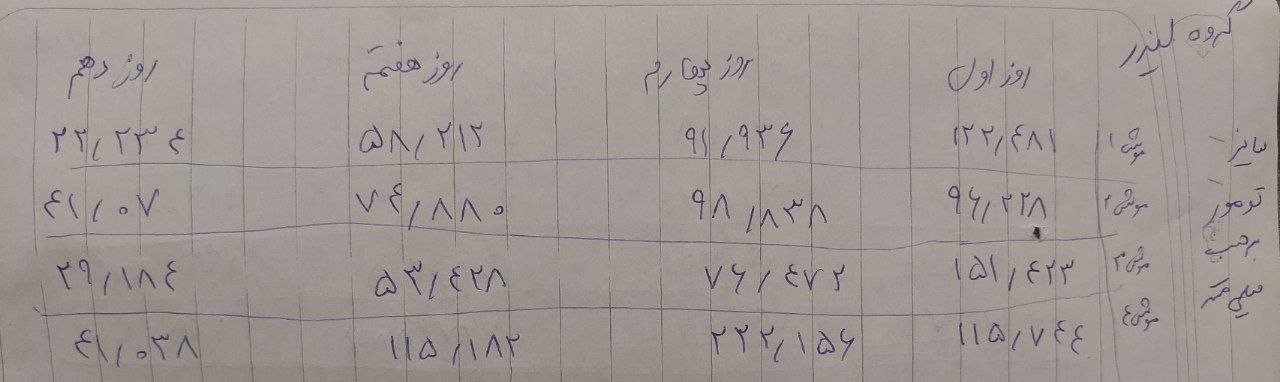 گروه لیزر
روز اول روز چهارم روز هفتم روز دهم
سایز موش ۱ ۱۲۲٫۴۸۱ ۹۱٫۹۳۶ ۵۸٫۲۱۲ ۲۲٫۲۳۴
تومور موش ۲ ۹۶٫۲۲۸ ۹۸٫۸۳۸ ۷۴٫۸۸۰ ۴۱٫۰۷
برحسب موش ۳ ۱۵۱٫۴۲۳ ۷۶٫۴۷۲ ۵۳٫۴۲۸ ۲۹٫۱۸۴
میلی متر موش ۴ ۱۱۵٫۷۴۴ ۲۳۲٫۱۵۶ ۱۱۵٫۱۸۲ ۴۱٫۰۳۸